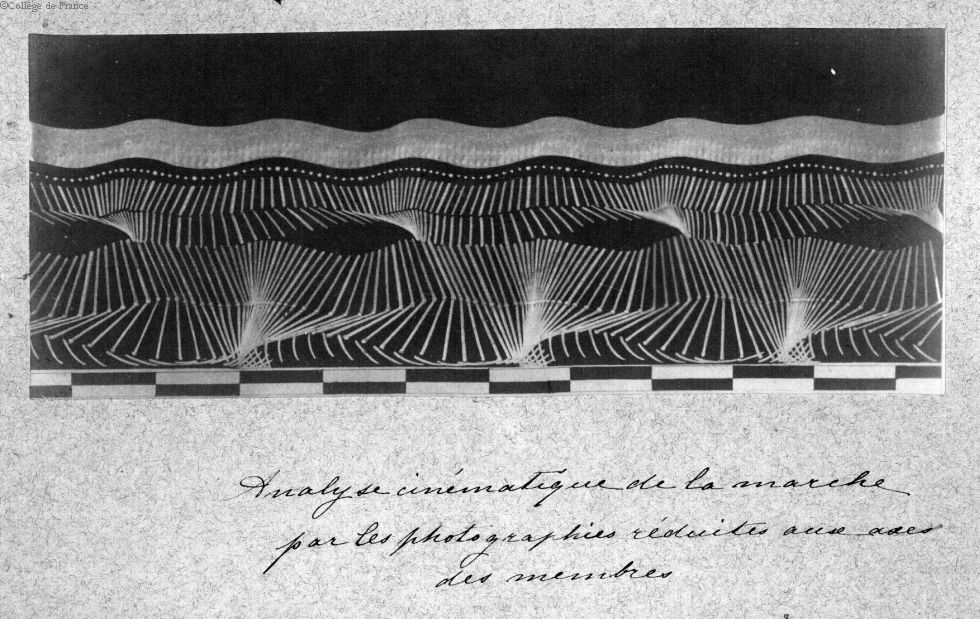 ©Collège de France
Analyse cinématique de la marche
par les photographies réduites aux axes
des membres